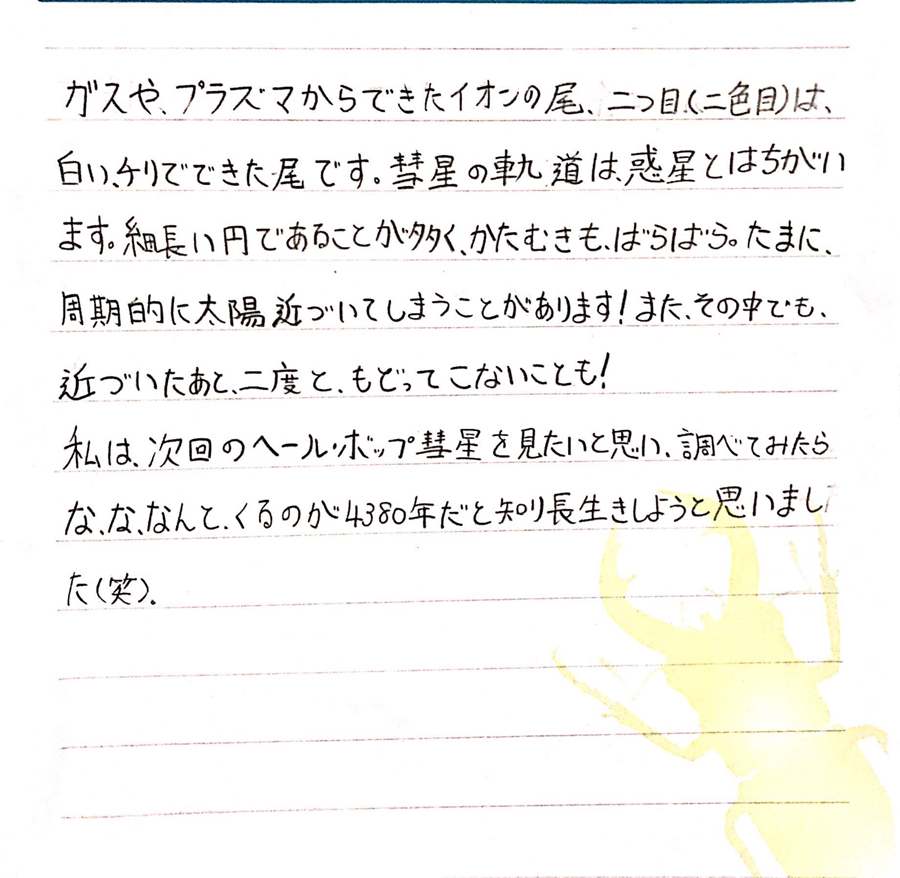 ガスや、プラズマからできたイオンの尾、二つ目、(二色目)は、
白い、チリでできた尾です。彗星の軌道は、惑星とはちがい
ます。細長い円であることが多く、かたむきも、ばらばら。たまに、
周期的に太陽近づいてしまうことがあります!また、その中でも、
近づいたあと、二度と、もどってこないことも!
私は、次回のヘール・ボップ彗星を見たいと思い、調べてみたら
な、な、なんと、くるのが4380年だと知り長生きしようと思いまし
た(笑)。